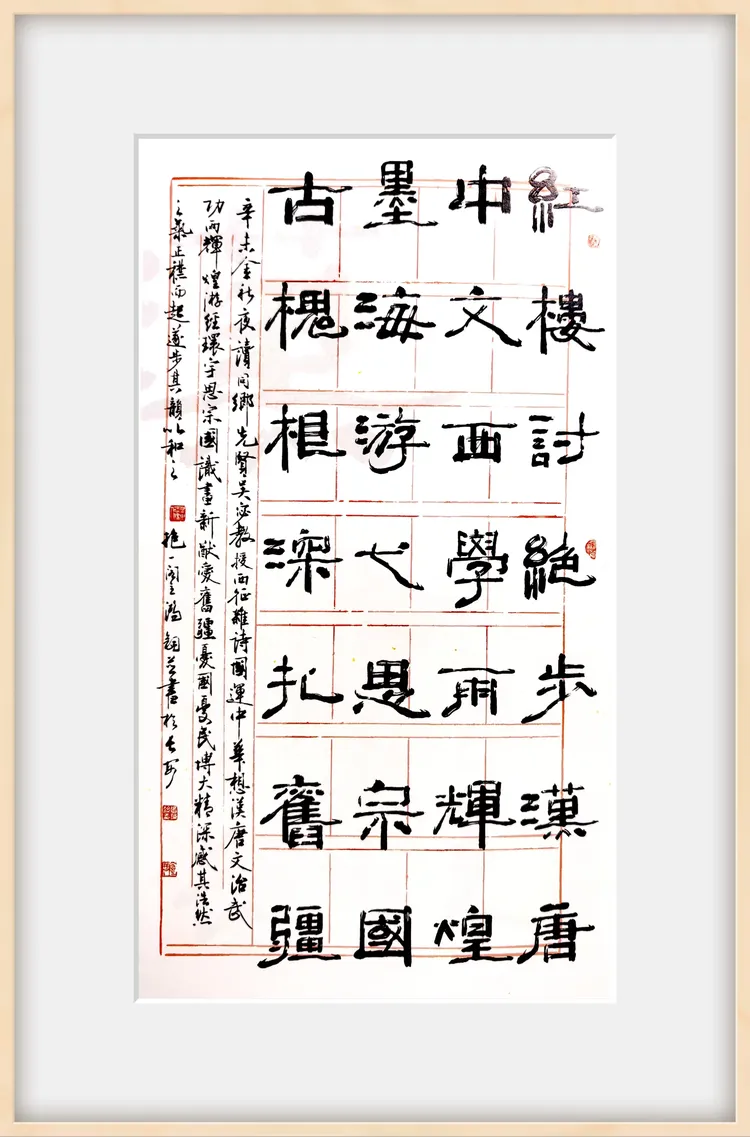 紅樓討絶步漢唐
中文西學兩輝煌
墨海游弋思宗國
古槐根深扎舊疆
辛未金秋夜讀同鄉先賢吴宓教授西征雜詩國運中華想漢唐文治武
功兩輝煌游經環宇思宗國識盡新猷愛舊疆憂國憂民博大精深感其浩然
之氣正襟而起遂步其韻以和之
抱一閣主馮書於長安